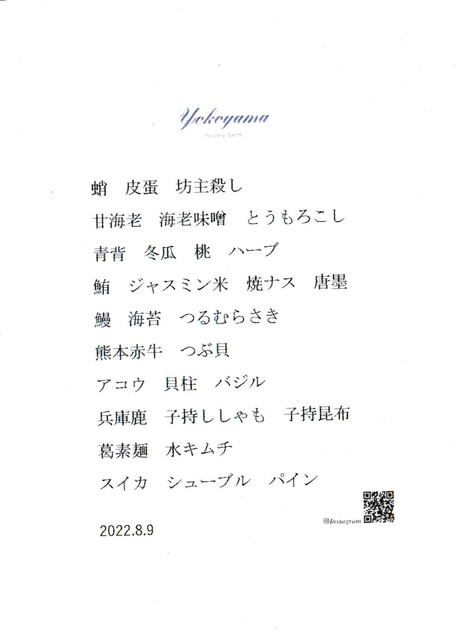 Yokoyama
蛸 皮蛋 坊主殺し
甘海老 海老味噌 とうもろこし
青背 冬瓜 桃 ハーブ
鮪 ジャスミン米 焼ナス 唐墨
鰻 海苔 つるむらさき
熊本赤牛 つぶ貝
アコウ 貝柱 バジル
兵庫鹿 子持ししゃも 子持昆布
葛素麺 水キムチ
スイカ シューブル パイン
@Instagram
2022.8.9